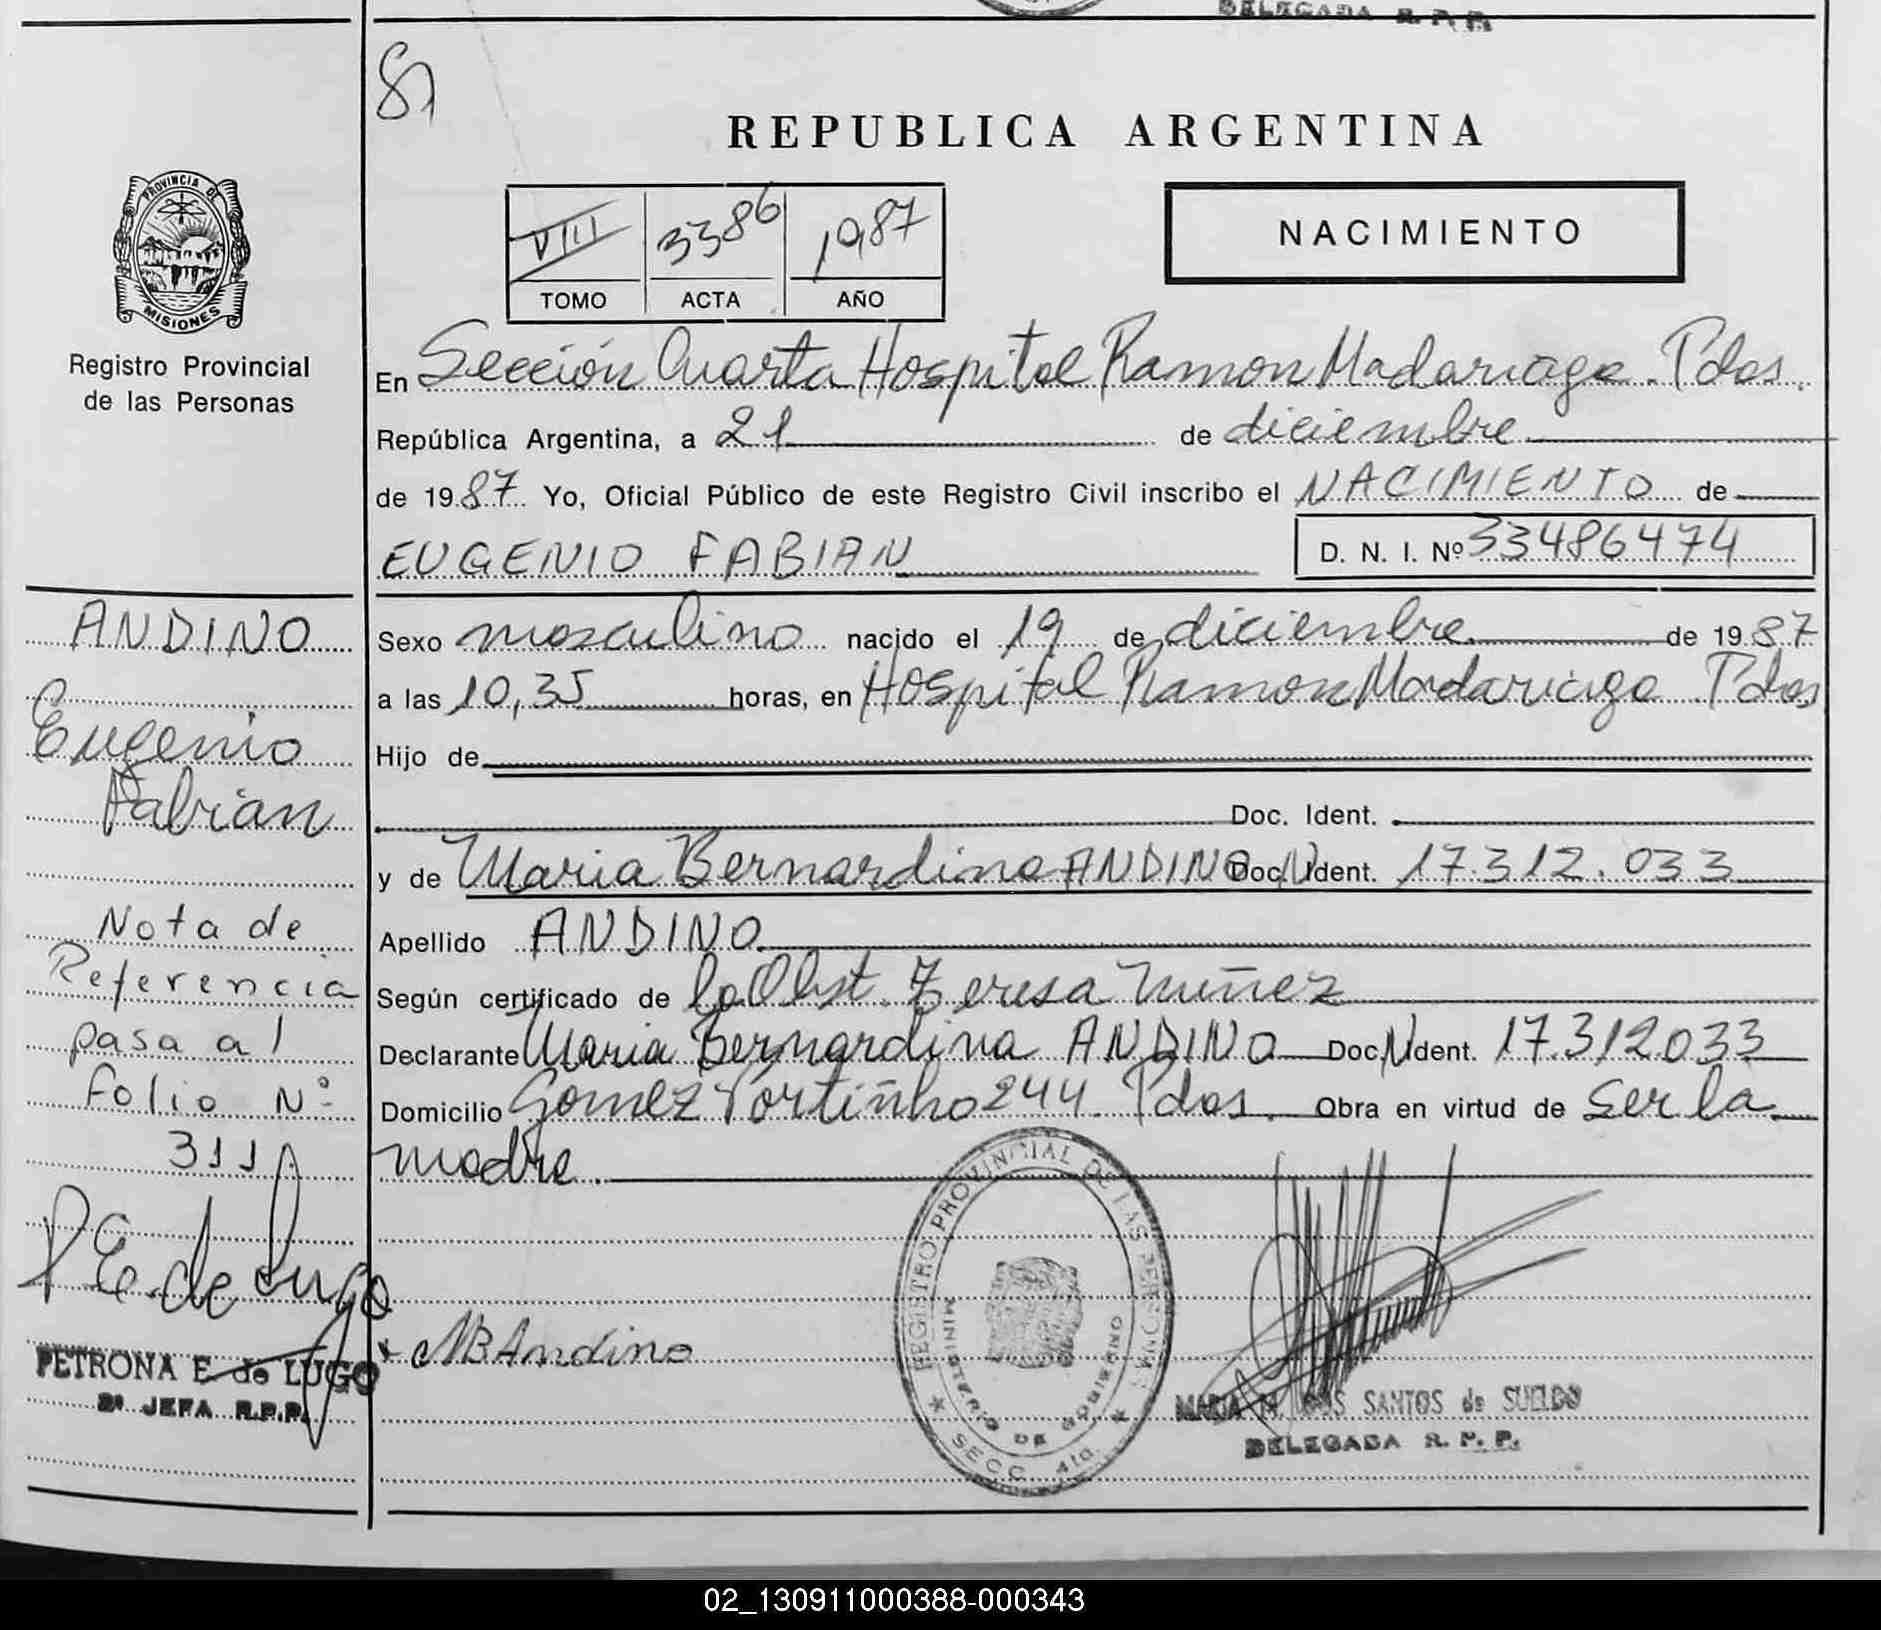 DELEGADA R. P. P.
81
REPUBLICA ARGENTINA
PROVINCIA DE
MISIONES
Registro Provincial
de las Personas
VIII 3386 1987
TOMO ACTA AÑO
NACIMIENTO
En Sección Cuarta Hospital Ramon Madariaga. Pdas.
República Argentina, a 21 de diciembre
de 1987 Yo, Oficial Público de este Registro Civil inscribo el NACIMIENTO de
EUGENIO FABIAN
D. N. I. Nº 33486474
ANDINO
Eugenio
Fabian
Nota de
Referencia
pasa al
Folio Nº
311
P E. de Lugo
PETRONA E. de LUGO
2ª JEFA R.P.P.
Sexo masculino nacido el 19 de diciembre de 1987
a las 10,35 horas, en Hospital Ramon Madariaga Pdas
Hijo de
Doc. Ident.
y de Maria Bernardina ANDINO Doc. N Ident. 17.312.033
Apellido ANDINO
Según certificado de la Obst. Teresa Nuñez
Declarante Maria Bernardina ANDINO Doc. N Ident. 17.312033
Domicilio Gomez Portinho 244 Pdas. Obra en virtud de ser la
madre.
REGISTRO PROVINCIAL DE LAS PERSONAS
MINISTERIO DE GOBIERNO
SECC. 4ta.
MBAndino
MARIA M. DOS SANTOS de SUELDO
DELEGADA R. P. P.
02_130911000388-000343